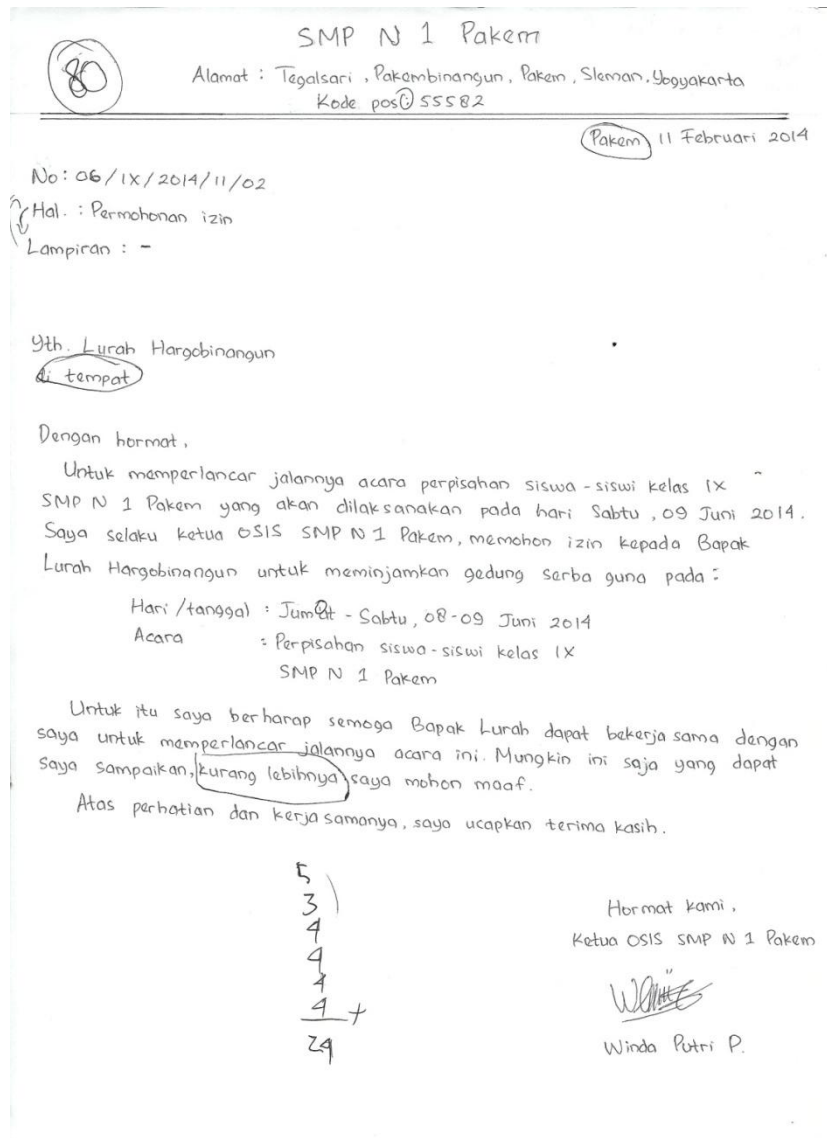 SMP N 1 Pakem
80
Alamat : Tegalsari , Pakembinangun , Pakem , Sleman , Yogyakarta
Kode pos : 55582
Pakem 11 Februari 2014
No : 06/IX/2014/11/02
Hal. : Permohonan izin
Lampiran : -
Yth. Lurah Hargobinangun
di tempat
Dengan hormat ,
Untuk memperlancar jalannya acara perpisahan siswa - siswi kelas IX
SMP N 1 Pakem yang akan dilaksanakan pada hari Sabtu , 09 Juni 2014 .
Saya selaku ketua OSIS SMP N 1 Pakem , memohon izin kepada Bapak
Lurah Hargobinangun untuk meminjamkan gedung serba guna pada :
Hari /tanggal : Jum'at - Sabtu , 08 - 09 Juni 2014
Acara : Perpisahan siswa - siswi kelas IX
SMP N 1 Pakem
Untuk itu saya berharap semoga Bapak Lurah dapat bekerja sama dengan
saya untuk memperlancar jalannya acara ini. Mungkin ini saja yang dapat
saya sampaikan, kurang lebihnya saya mohon maaf.
Atas perhatian dan kerja samanya, saya ucapkan terima kasih.
5
3
4
4
4
4 +
24
Hormat kami ,
Ketua OSIS SMP N 1 Pakem
Winda Putri P.